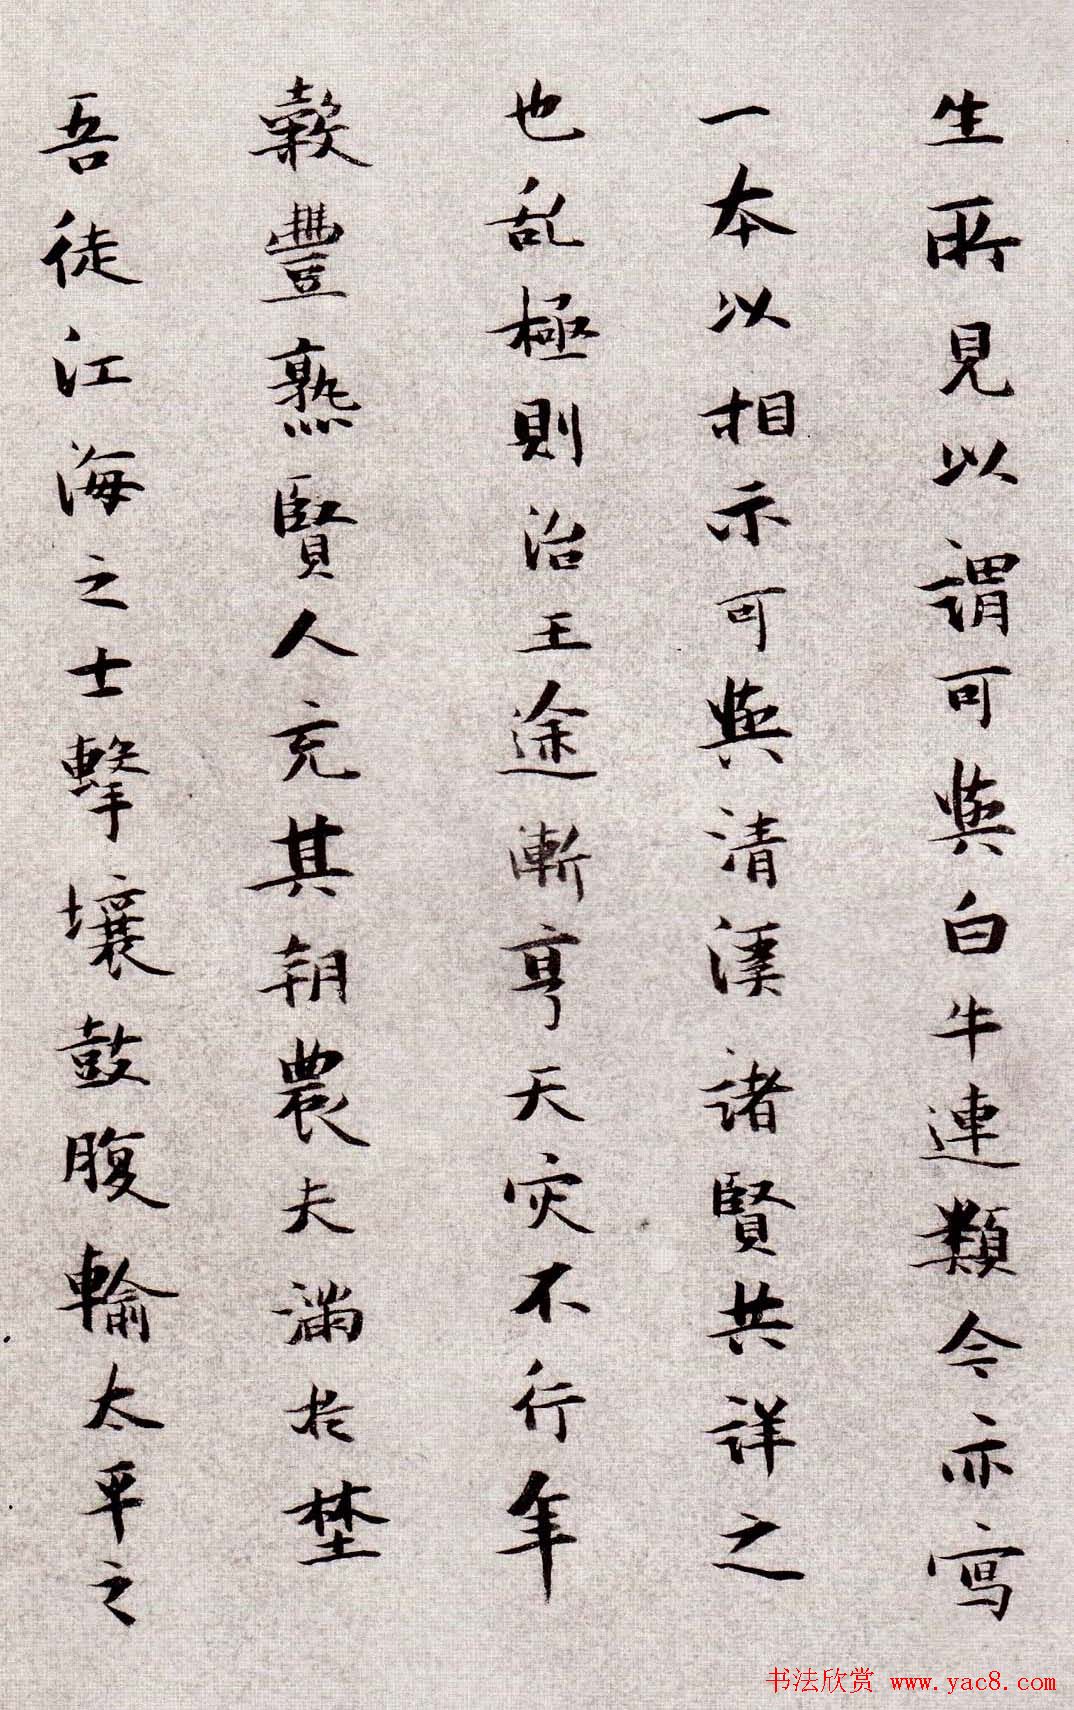 生所見以謂可與白牛連類今亦寫
一本以相示可與清溪諸賢共詳之
也乱極則治王途漸亨天灾不行年
穀豐熟賢人充其朝農夫滿於埜
吾徒江海之士擊壤鼓腹輸太平之
书法欣赏 www.yac8.com